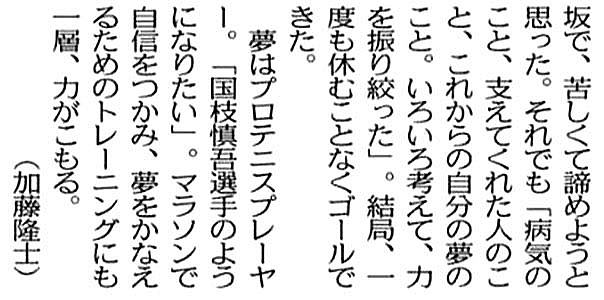 坂で、苦しくて諦めようと
思った。それでも「病気の
こと、支えてくれた人のこ
と、これからの自分の夢の
こと。いろいろ考えて、力
を振り絞った」。結局、一
度も休むことなくゴールで
きた。
夢はプロテニスプレーヤ
ー。「国枝慎吾選手のよう
になりたい」。マラソンで
自信をつかみ、夢をかなえ
るためのトレーニングにも
一層、力がこもる。
（加藤隆士）